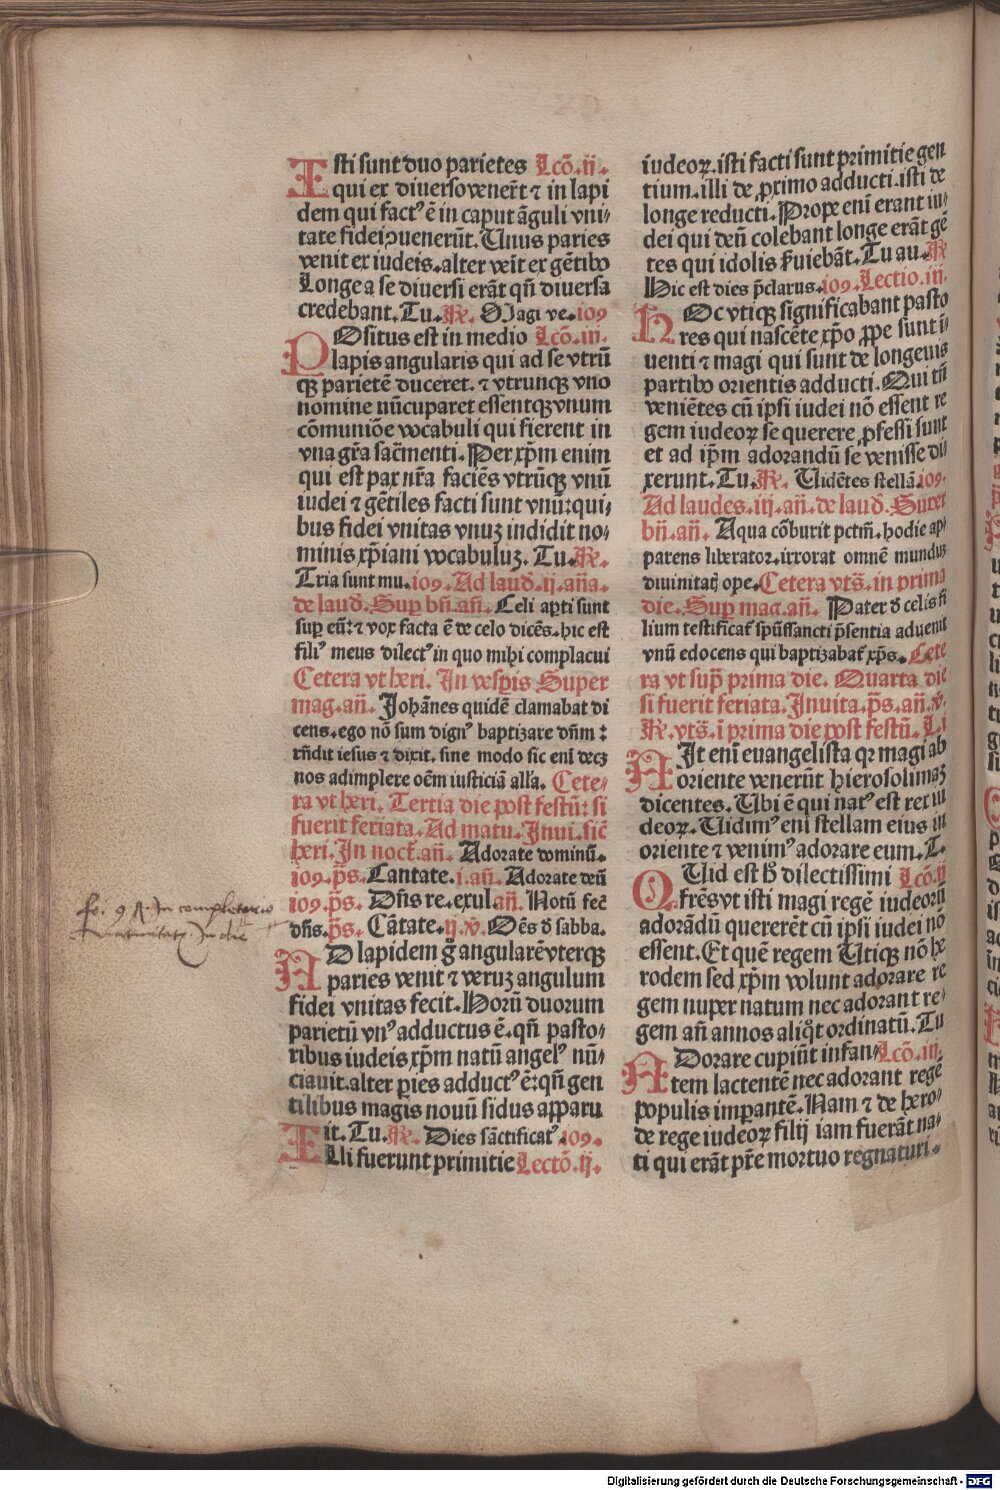 Isti sunt duo parietes Lcō.ij.
qui ex diuerso veneṙt ⁊ in lapi
dem qui fact⁹ ē in caput āguli vni-
tate fidei ꝯuenerūt. Unus paries
venit ex iudeis. alter veīt ex gētibꝰ
Longe a se diuersi erāt qn̄ diuersa
credebant. Tu. R̷. Magi ve. 109
Positus est in medio Lcō.iij.
lapis angularis qui ad se vtrū
qꝫ parietē duceret. ⁊ vtrunqꝫ vno
nomine nūcuparet essentqꝫ vnum
cōmuniōe vocabuli qui fierent in
vna gr̄a sac̄menti. Per xp̄m enim
qui est pax nr̄a faciēs vtrūqꝫ vnū
iudei ⁊ gētiles facti sunt vnū: qui-
bus fidei vnitas vnuꝫ indidit no-
minis xp̄iani vocabuluꝫ. Tu. R̷.
Tria sunt mu. 109. Ad laud̄. ij. an̄a.
de laud̄. Suꝑ bn̄. an̄. Celi aꝑti sunt
suꝑ eū: ⁊ vox facta ē de celo dicēs. hic est
fili⁹ meus dilect⁹ in quo mihi complacui
Cetera vt heri. In vesꝑis Super
mag. an̄. Johānes quidē clamabat di
cens. ego nō sum dign⁹ baptizare dn̄m:
rn̄dit iesus ⁊ dixit. sine modo sic enī decꝫ
nos adimplere oēm iusticiā all̄a. Cete-
ra vt heri. Tertia die post festū: si
fuerit feriata. Ad matu. Inui. sic̄
heri. In noct̄. an̄. Adorate dominū.
109. ps̄. Cantate. i. an̄. Adorate deū
109. ps̄. Dn̄s re. exul an̄. Notū fec̄
dn̄s. ps̄. Cātate. ij. v̄. Oēs d̄ sabba.
AD lapidem g̃ angularē vterqꝫ
paries venit ⁊ veruꝫ angulum
fidei vnitas fecit. Horū duorum
parietū vn⁹ adductus ē. qn̄ pasto-
ribus iudeis xp̄m natū angel⁹ nū-
ciauit. alter ꝑies adduct⁹ ē: qn̄ gen
tilibus magis nouū sidus apparu
it. Tu. R̷. Dies sāctificat⁹. 109.
Illi fuerunt primitie Lectō.ij.
iudeoꝝ. isti facti sunt primitie gen
tium. illi de ꝓximo adducti. isti de
longe reducti. Prope enī erant iu-
dei qui deū colebant longe erāt gē
tes qui idolis ẜuiebāt. Tu au. R̷
Hic est dies p̄clarus. 109. Lectio.iij.
Hoc vtiqꝫ significabant pasto
res qui nascēte xp̄o ꝓpe sunt ī
uenti ⁊ magi qui sunt de longeuis
partibꝰ orientis adducti. Qui tn̄
veniētes cū ipsi iudei nō essent re
gem iudeoꝝ se querere ꝓfessi sunt
et ad ip̄m adorandū se venisse di-
xerunt. Tu. R̷. Uidētes stellā. 109.
Ad laudes. iij. an̄. de laud̄. Super
bn̄. an̄. Aqua cōburit pctm̄. hodie ap-
parens liberator. irrorat omnē munduꝫ
diuinitaṫ ope. Cetera vts̄. in prima
die. Suꝑ mag. an̄. Pater d̄ celis fi
lium testificat̄ spūssancti p̄sentia aduenit
vnū edocens qui baptizabat̄ xp̄s. Cete
ra vt sup̄ prima die. Quarta die
si fuerit feriata. Inuita. ps̄. an̄. v̄.
R̷. vts̄. ī prima die post festū. Li
AIt enī euangelista qr magi ab
oriente venerūt hierosolimaꝫ
dicentes. Ubi ē qui nat⁹ est rex iu
deoꝝ. Uidim⁹ enī stellam eius in
oriente ⁊ venim⁹ adorare eum. T.
QUid est h̄ dilectissimi Lcō.ij
fr̄es vt isti magi regē iudeorū
adorādū quererēt cū ipsi iudei nō
essent. Et quē regem Utiqꝫ nō he
rodem sed xp̄m volunt adorare re
gem nuper natum nec adorant re-
gem an̄ annos aliq̇t ordinatū. Tu
ADorare cupiūt infan- Lcō.iij.
tem lactentē nec adorant regē
populis imperantē. Nam ⁊ de hero-
de rege iudeoꝝ filij iam fuerāt na-
ti qui erāt pr̄e mortuo regnaturi.
Digitalisierung gefördert durch die Deutsche Forschungsgemeinschaft - DFG